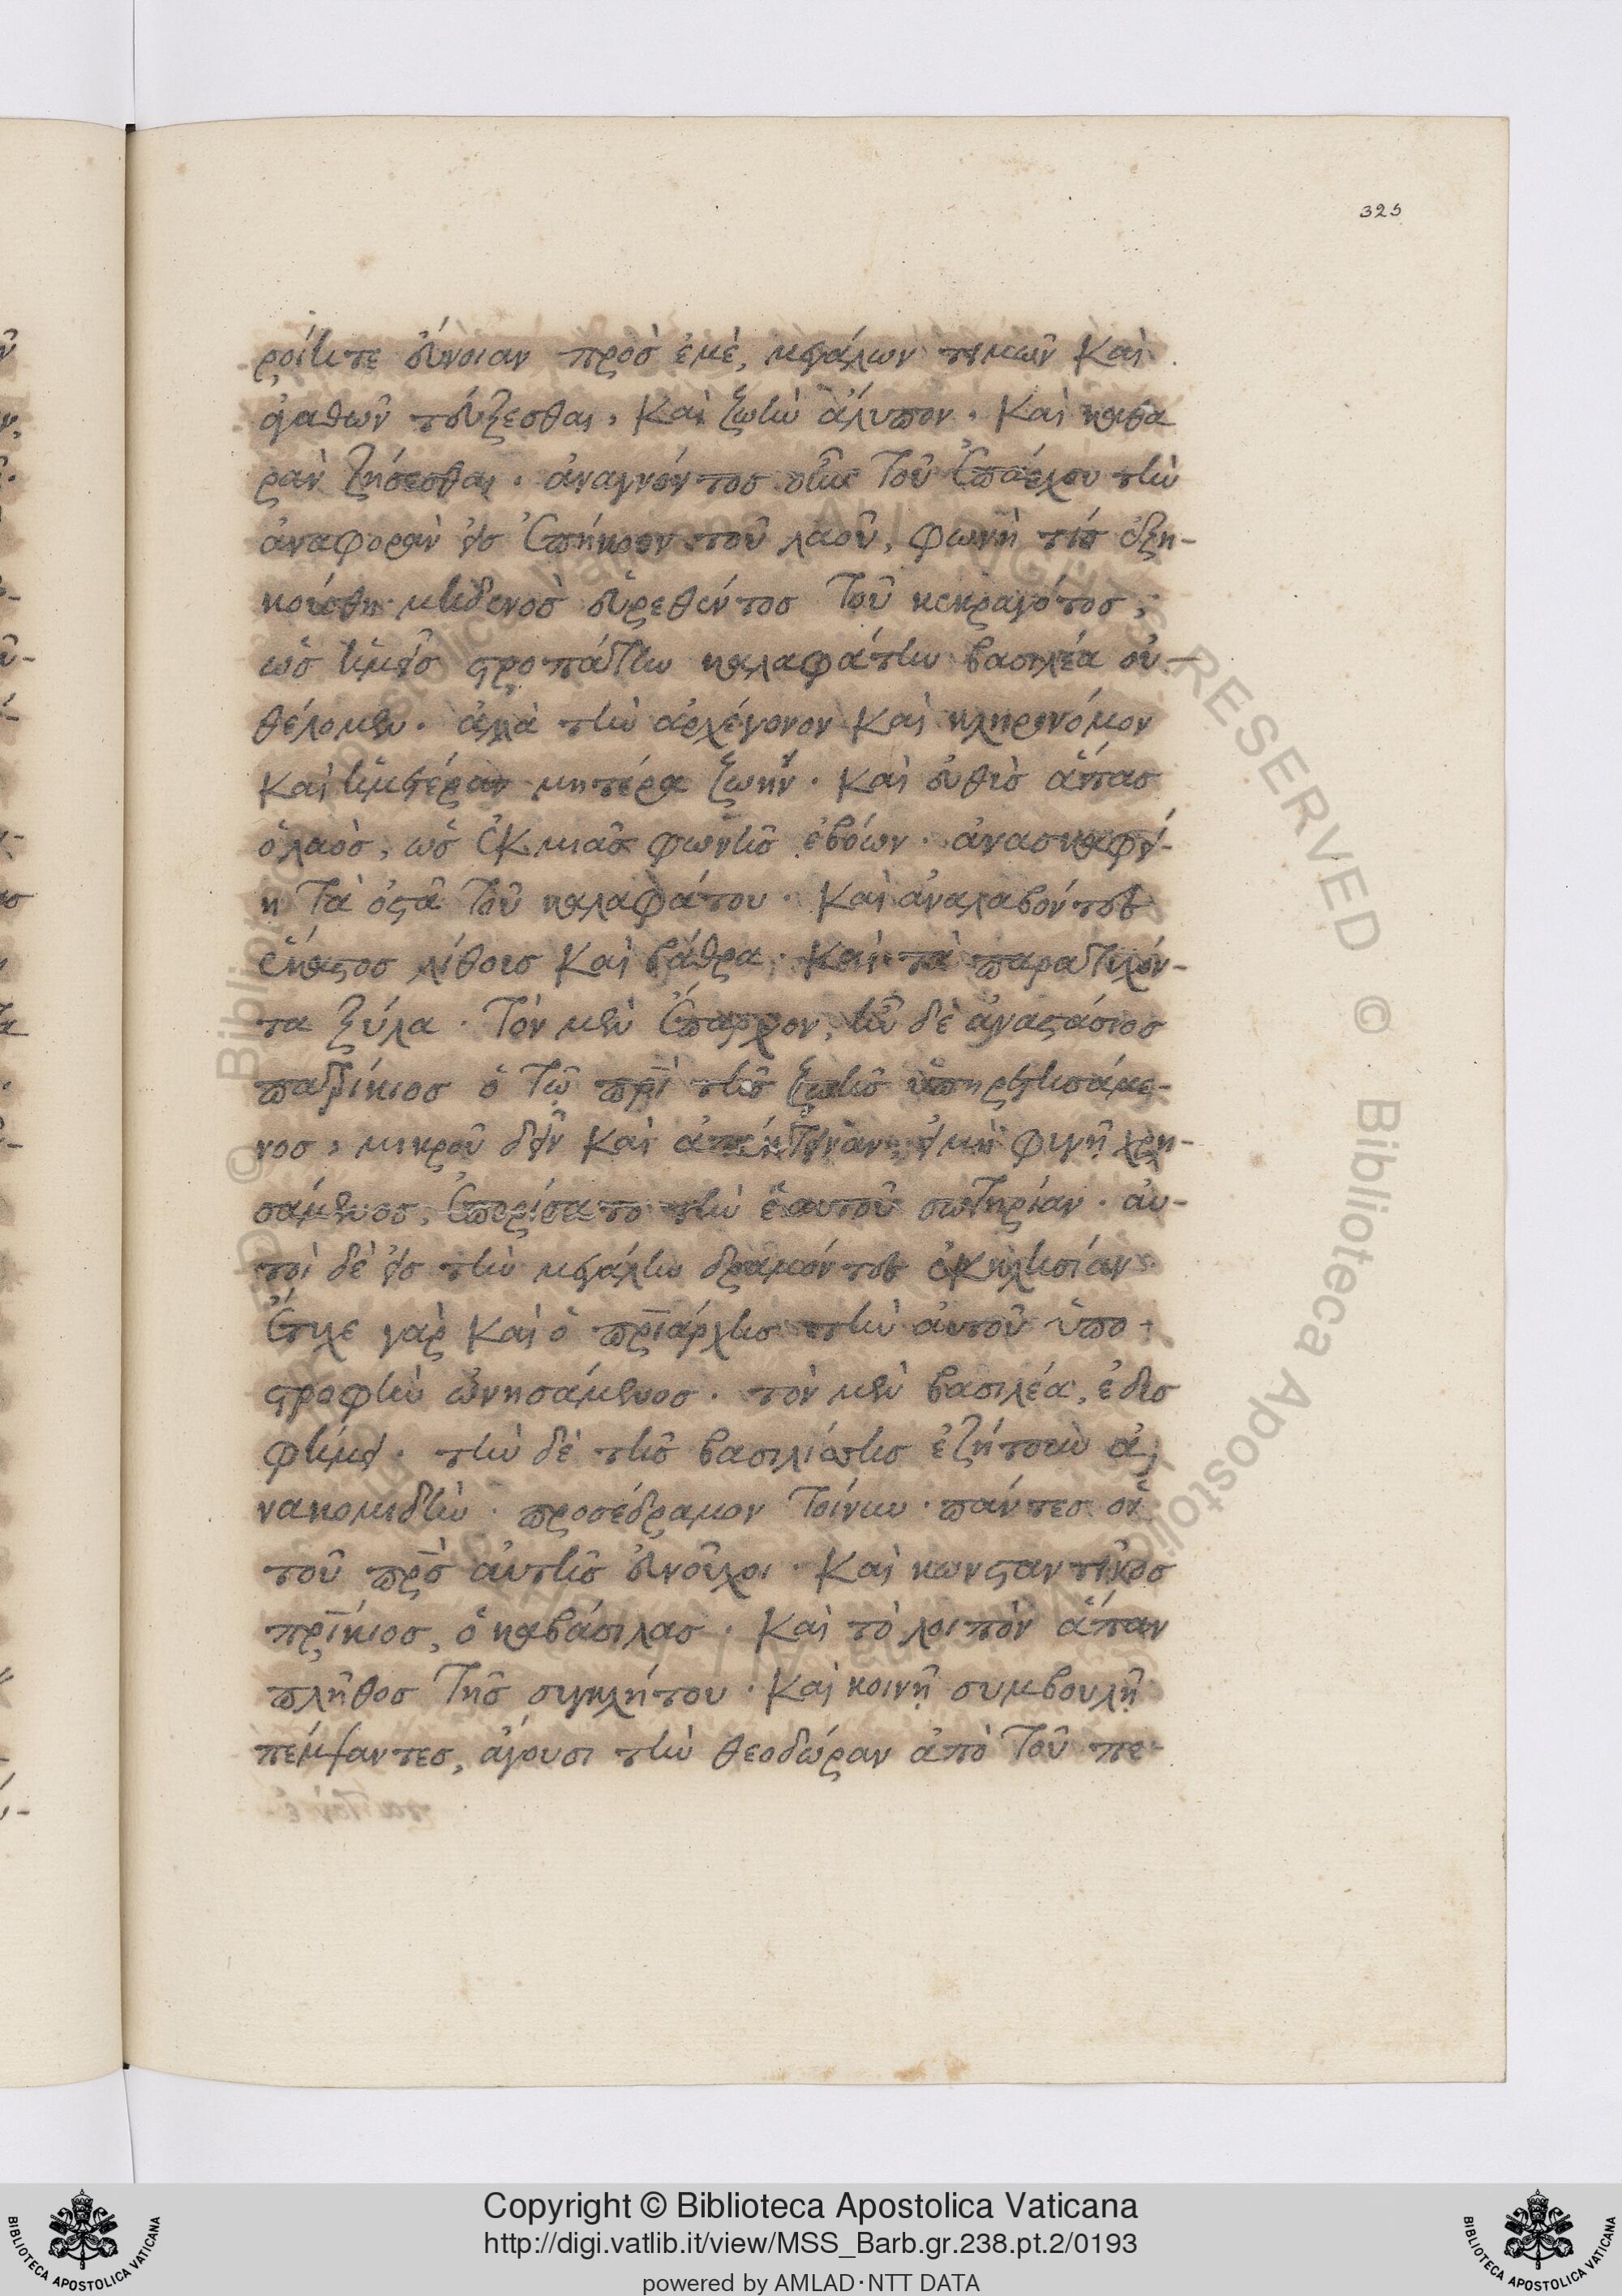 325
ροίητε εὔνοιαν πρὸσ ἐμὲ, μεγάλων τιμῶν καὶ
ἀγαθῶν τεύξεσθαι, καὶ ζωὴν ἄλυπον, καὶ καθα
ρὰν ζήσεσθαι. ἀναγνόντοσ οὖν τοῦ ἐπάρχου τὴν
ἀναφορὰν εἰσ ἐπήκοον τοῦ λαοῦ, φωνή τίσ ἐξη-
κούσθη μηδενὸσ εὑρεθέντοσ τοῦ κεκραγότοσ,
ὡσ ἡμεῖσ στροπάτην καλαφάτην βασιλέα οὐ
θέλομεν. ἀλλὰ τὴν ἀρχέγονον καὶ κληρονόμον
καὶ ἡμετέραν μητέρα ζωήν. καὶ εὐθὺσ ἅπασ
ὁ λαὸσ, ὡσ ἐκ μιᾶσ φωνῆσ ἐβόων. ἀνασκαφεί-
η τὰ ὀστᾶ τοῦ καλαφάτου. καὶ ἀναλαβόντεσ
ἕκαστοσ λίθοισ καὶ βάθρα, καὶ τὰ παρατυχόν-
τα ξύλα. τὸν μὲν ἔπαρχον, ἦν δὲ ἀναστάσιοσ
πατρίκιοσ ὁ τῶ πρὶ τῆσ ζωῆσ ὑπηρετησάμε-
νοσ, μικροῦ δεῖν καὶ ἀπέκτειναν, εἰ μὴ φυγῆ χρη-
σάμενοσ, ἐπορίσατο τὴν ἑαυτοῦ σωτηρίαν. αὐ-
τοὶ δὲ εἰσ τὴν μεγάλην δραμόντεσ ἐκκλησίαν
ἔτυχε γὰρ καὶ ὁ πριάρχησ τὴν αὐτοῦ ὑπο-
στροφὴν ὠνησάμενοσ. τὸν μὲν βασιλέα, ἐδυσ
φήμει. τὴν δὲ τῆσ βασιλίσσησ ἐζήτουν ἀ-
νακομιδὴν. προσέδραμον τοίνυν. πάντεσ οἱ
τοῦ πρσ αὐτῆσ εὐνοῦχοι. καὶ κωνσταντῖνοσ
πρίκιοσ, ὁ καβάσιλασ. καὶ τὸ λοιπὸν ἅπαν
πλῆθοσ τῆσ συγκλήτου. καὶ κοινῆ συμβουλῆ
πέμψαντεσ, ἄγουσι τὴν θεοδώραν ἀπὸ τοῦ πε-
© Biblioteca Apostolica Vaticana ALL RIGHTS RESERVED
Copyright © Biblioteca Apostolica Vaticana
http://digi.vatlib.it/view/MSS_Barb.gr.238.pt.2/0193
powered by AMLAD·NTT DATA
BIBLIOTECA APOSTOLICA VATICANA
BIBLIOTECA APOSTOLICA VATICANA